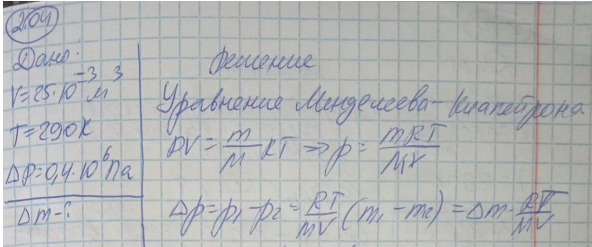 204
Дано:
V=25·10⁻³ м³
T=290K
Δp=0,4·10⁶ Па
Δm-?
Решение
Уравнение Менделеева-Клапейрона
PV = m/M RT => p = mRT/MV
Δp = p₁-p₂ = RT/MV (m₁-m₂) = Δm· RT/MV